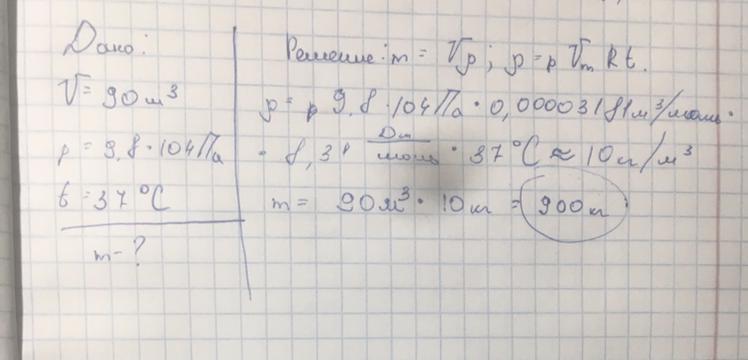 Дано:
V = 90 м³
p = 9,8 · 104 Па
t = 37 °C
m - ?
Решение: m = Vρ; ρ = p Vm R t.
ρ = p 9,8 · 104 Па · 0,00003181 м³/моль ·
· 8,31 Дж/моль · 37 °C ≈ 10 кг/м³
m = 90 м³ · 10 кг = 900 кг